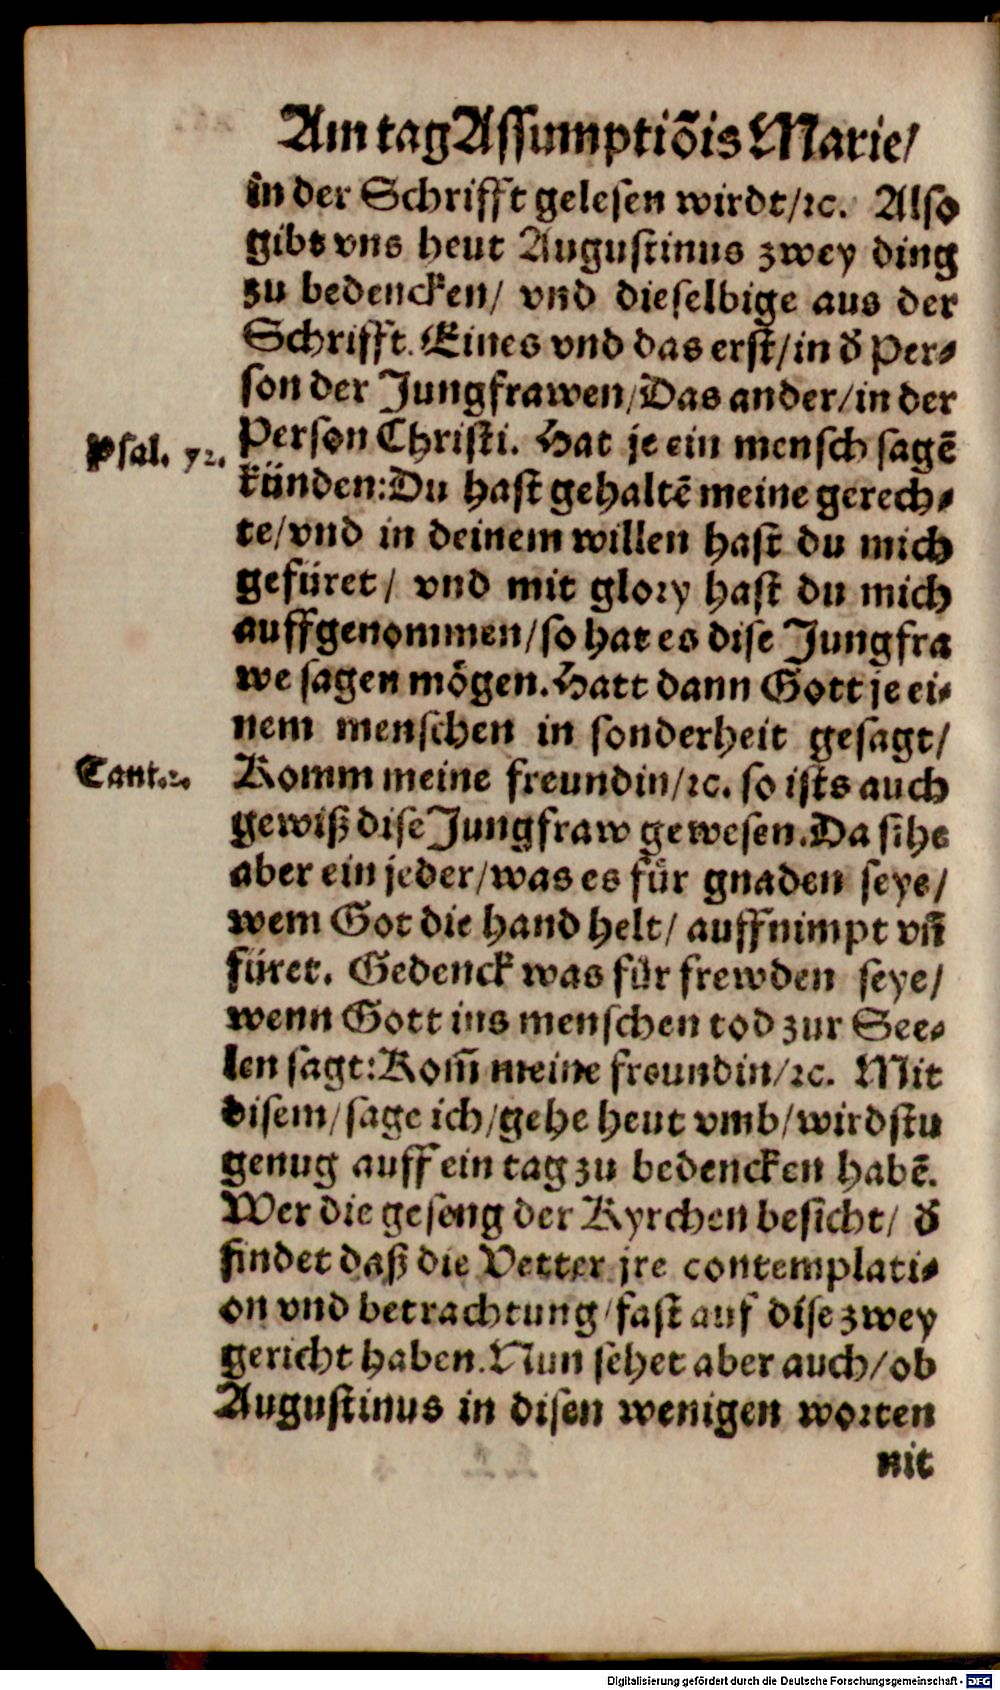 Am tag Assumptiõis Marie/
in der Schrifft gelesen wirdt/ꝛc. Also
gibt vns heut Augustinus zwey ding
zu bedencken/ vnd dieselbige aus der
Schrifft. Eines vnd das erst/in d̕ Per⸗
son der Jungfrawen/Das ander/in der
Psal. 72. Person Christi. Hat je ein mensch sagẽ
künden:Du hast gehaltẽ meine gerech⸗
te/vnd in deinem willen hast du mich
gefüret/ vnd mit glory hast du mich
auffgenommen/so hat es dise Jungfra
we sagen mögen. Hatt dann Gott je ei⸗
nem menschen in sonderheit gesagt/
Cant. 2. Komm meine freundin/ꝛc. so ists auch
gewiß dise Jungfraw gewesen. Da sihe
aber ein jeder/was es für gnaden seye/
wem Got die hand helt/ auffnimpt vñ
füret. Gedenck was für frewden seye/
wenn Gott ins menschen tod zur See⸗
len sagt: Kom̃ meine freundin/ꝛc. Mit
disem/sage ich/gehe heut vmb/wirdstu
genug auff ein tag zu bedencken habẽ.
Wer die geseng der Kyrchen besicht/ d̕
findet daß die Vetter jre contemplati⸗
on vnd betrachtung/fast auf dise zwey
gericht haben. Nun sehet aber auch/ob
Augustinus in disen wenigen worten
nit
Digitalisierung gefördert durch die Deutsche Forschungsgemeinschaft - DFG